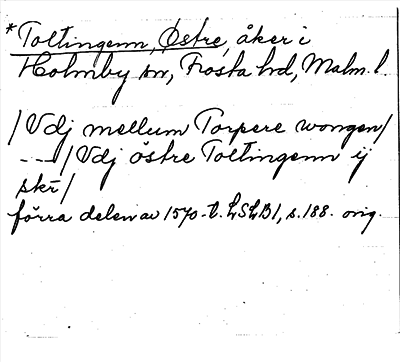 *Toltingenn, Østre, åker i
Holmby sn, Frosta hd, Malm. l.
/Vdj mellum Torpere wongen/
---/Vdj östre Toltingenn ij
skr̄/
förra delen av 1570-t. LSLB1, s. 188. orig.